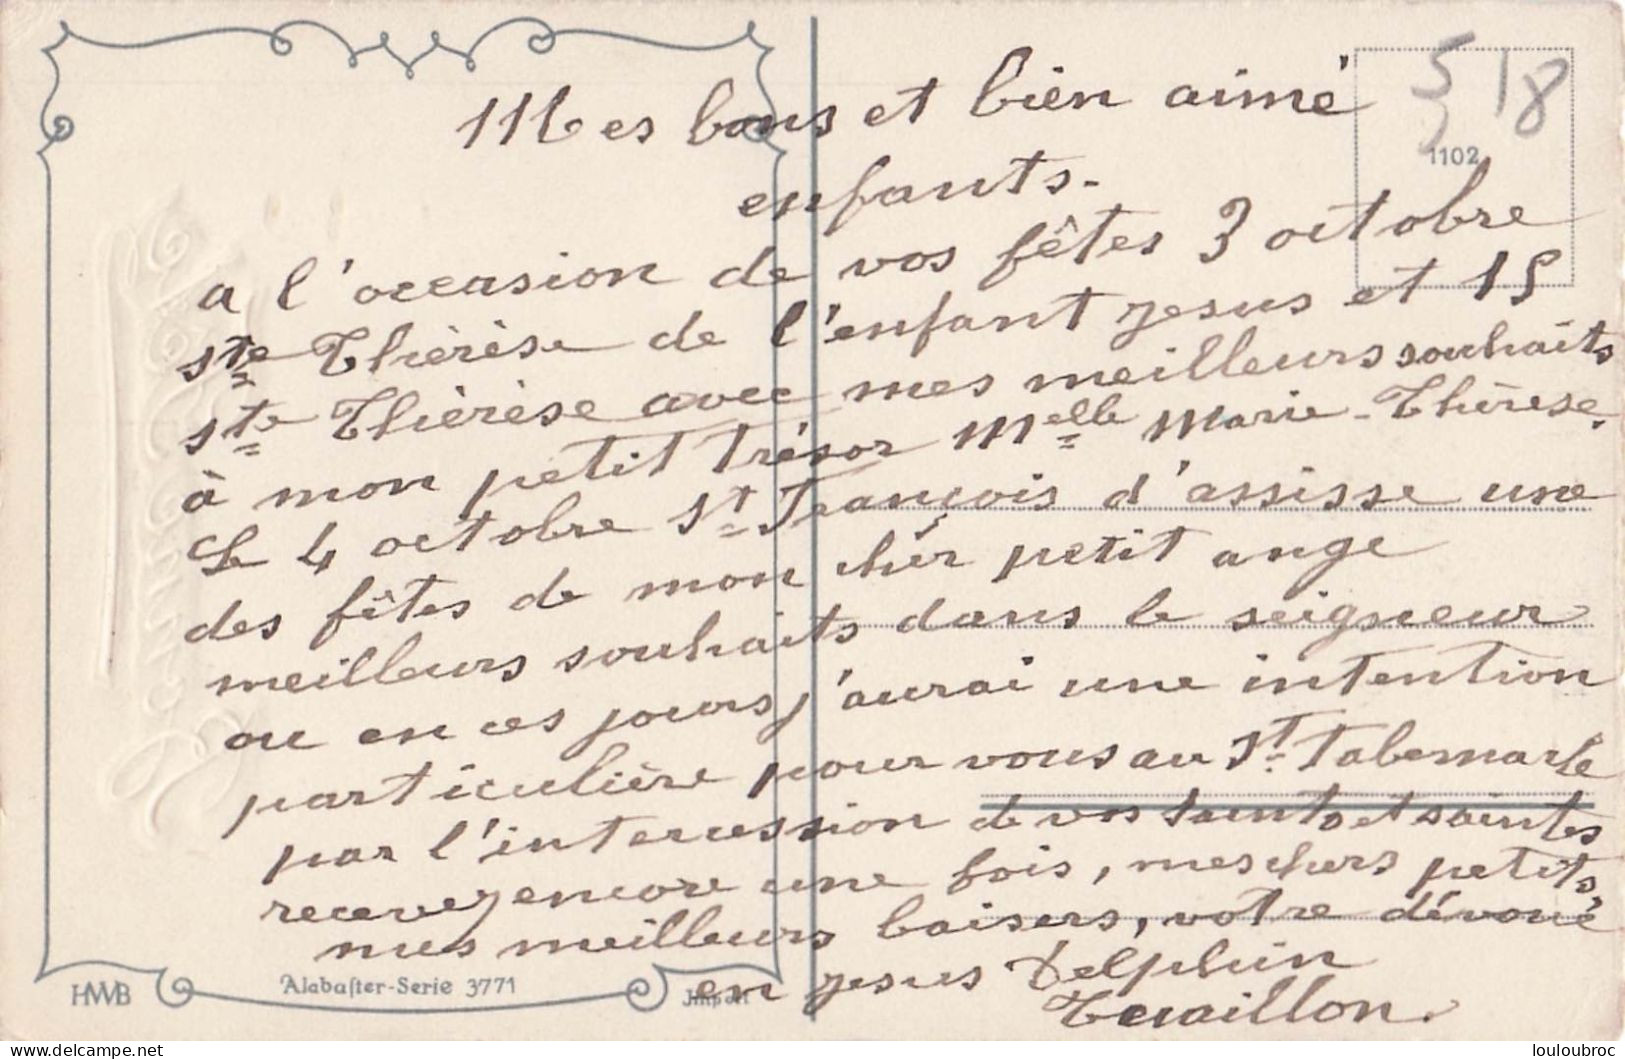 Mes bons et bien aimé
enfants.
a l'occasion de vos fêtes 3 octobre
ste Thérèse de l'enfant jesus et 15
ste Thérèse avec mes meilleurs souhaits
à mon petit Trésor Melle Marie-Thérèse.
Le 4 octobre St François d'assisse une
des fêtes de mon chér petit ange
meilleurs souhaits dans le seigneur
ou en ces jours j'aurai une intention
particulière pour vous au St Tabernacle
par l'intercession de vos saints et saintes
recevez encore une fois, mes chers petits,
mes meilleurs baisers, votre dévoué
en jesus Delphin
Tuaillon.
5 18
1102
HWB
Alabaster-Serie 3771
Import
delcampe.net
louloubroc